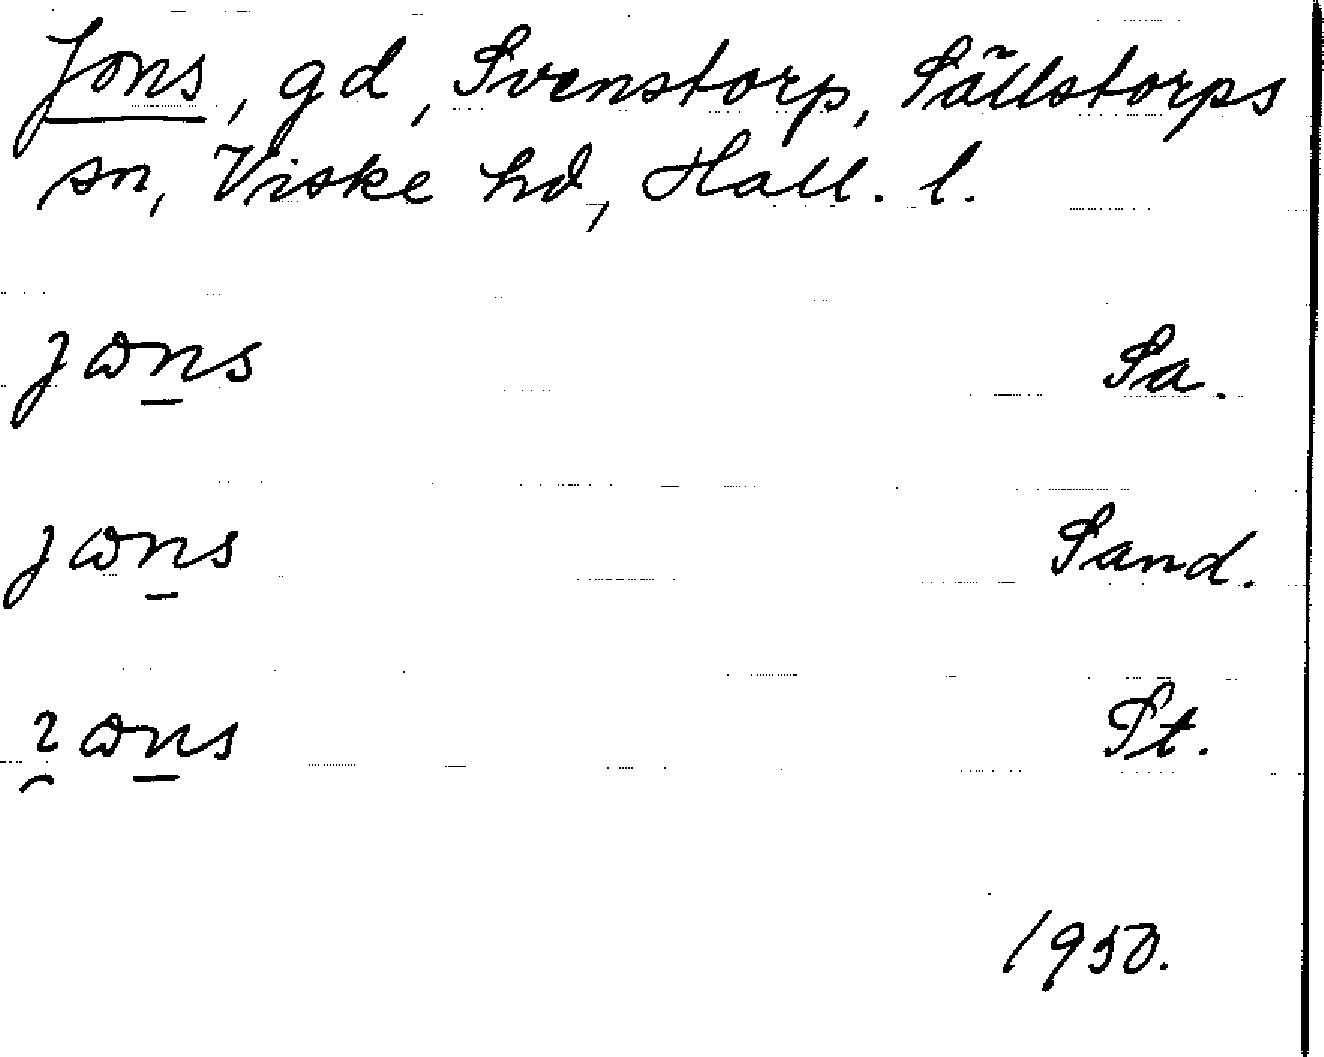 Jons, gd, Svenstorp, Sällstorps
sn, Viske hd, Hall. l.
jɷns Sa.
jɷns Sand.
ɷns St.
1950.